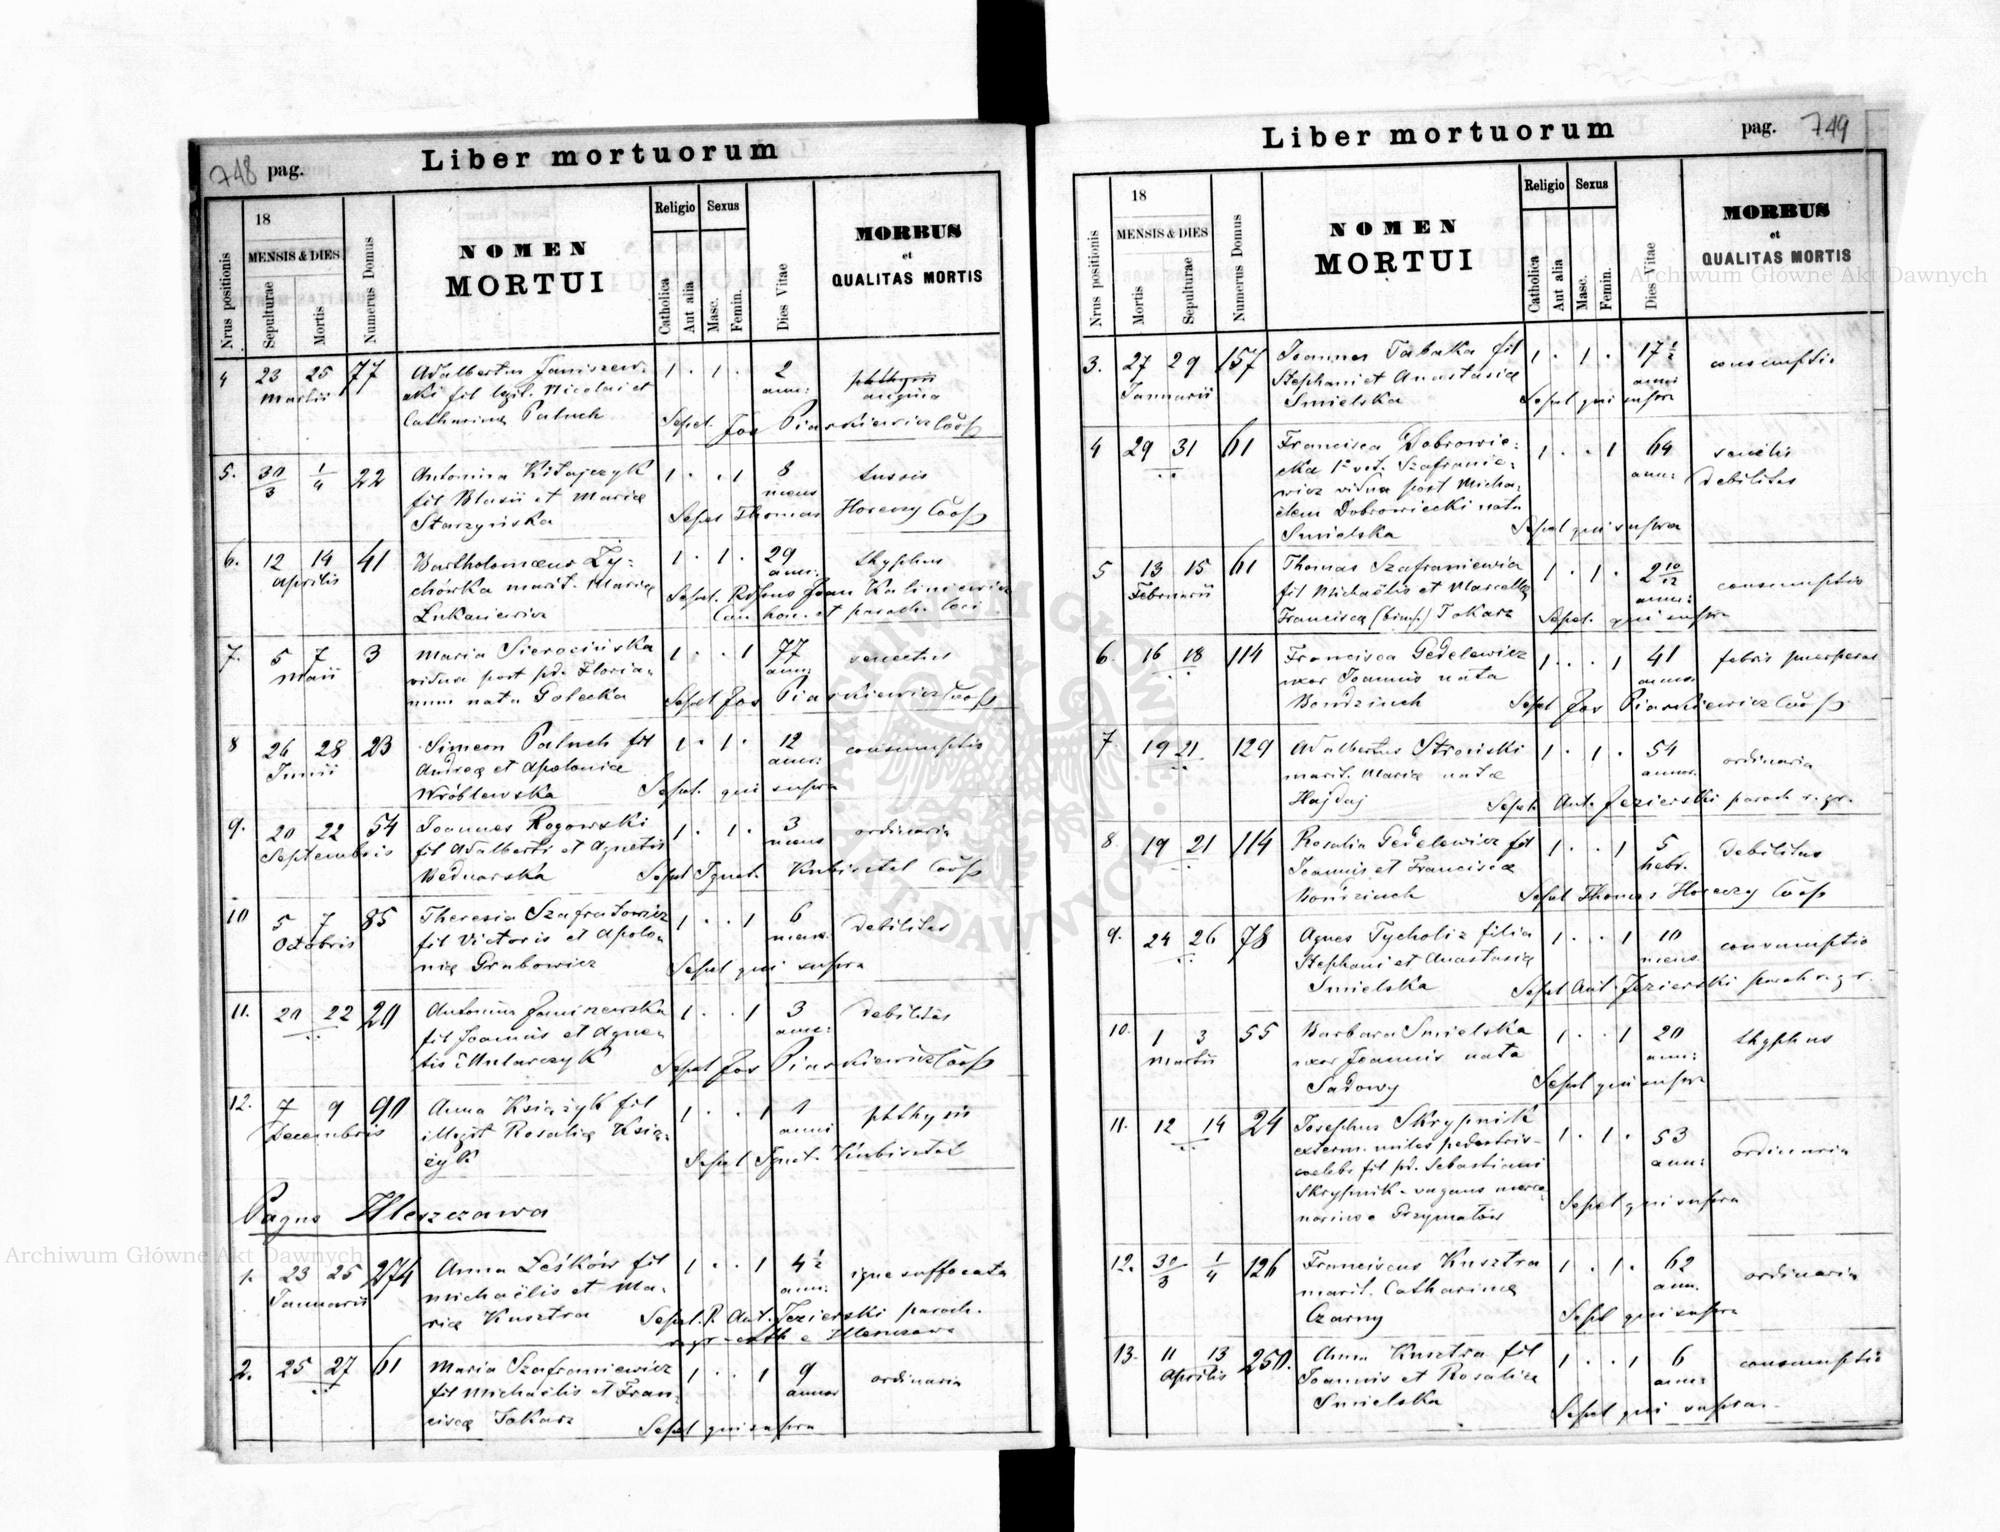 748 pag.
Liber mortuorum
Nrus positionis
18
MENSIS & DIES
Sepulturae
Mortis
Numerus Domus
NOMEN
MORTUI
Religio
Sexus
Catholica
Aut alia
Masc.
Femin.
Dies Vitae
MORBUS
et
QUALITAS MORTIS
4 23 25 77 Adalbertus Janiszew- 1 · 1 · 2 phthysis
Martii ski fil legit. Nicolai et ann: angina
Catharinæ Paluch Sepel. Jos Piaskiewicz Coop
5. 30/3 1/4 22 Antonina Kitajczyk 1 · · 1 8 tussis
fil Blasii et Mariæ mens
Starzyńska Sepel Thomas Horeczy Coop
6. 12 14 41 Bartholomæus Zy- 1 · 1 · 29 thyphus
Aprilis chówka marit. Mariæ ann:
Lukasiewicz Sepel. Joan Kaliniewicz
Can hon. et paroch. loci
7. 5 7 3 Maria Sierocińska 1 · · 1 77 senectus
Maii vidua post pd. Floria- ann:
num nata Gołecka Sepel Jos Piaskiewicz Coop
8 26 28 23 Simeon Paluch fil 1 · 1 · 12 consumptio
Junii Andreæ et Apoloniæ ann:
Wróblewska Sepel. qui supra
9. 20 22 54 Joannes Rogowski 1 · 1 · 3 ordinaria
Septembris fil Adalberti et Agnetis mens
Bednarska Sepel Ignat. Kubisztal Coop
10 5 7 85 Theresia Szafratowicz 1 · · 1 6 debilitas
Octobris fil Victoris et Apolo- mens.
niæ Grabowicz Sepel qui supra
11. 20 22 20 Antonina Janiszewska 1 · · 1 3 debilitas
fil Joannis et Agne- ann:
tis Mularczyk Sepel Jos Piaskiewicz Coop
12. 7 9 90 Anna Książyk fil 1 · · 1 1 phthysis
Decembris illegit Rosaliæ Ksią- anni
żyk Sepel Ignat. Kubisztal
Pagus Hleszczawa
1. 23 25 274 Anna Leśków fil 1 · · 1 4 1/2 igne suffocata
Januarii Michaëlis et Ma- ann:
riæ Kusztra Sepel. P. Ant. Jezierski paroch.
e Hleszczawa
2. 25 27 61 Maria Szafraniewicz 1 · · 1 9 ordinaria
fil Michaëlis et Fran- annor
ciscæ Tokarz Sepel qui supra
Liber mortuorum
pag. 749
Nrus positionis
18
MENSIS & DIES
Mortis
Sepulturae
Numerus Domus
NOMEN
MORTUI
Religio
Sexus
Catholica
Aut alia
Masc.
Femin.
Dies Vitae
MORBUS
et
QUALITAS MORTIS
3. 27 29 157 Joannes Tabaka fil 1 · 1 · 17 1/2 consumptio
Januarii Stephani et Anastasiæ annor
Smielska Sepel qui supra
4 29 31 61 Francisca Dobrowie- 1 · · 1 64 senilis
cka 1º vot. Szafranie- ann: debilitas
wicz vidua post Micha-
ëlem Dobrowiecki nata
Smielska Sepel qui supra
5 13 15 61 Thomas Szafraniewicz 1 · 1 · 2 10/12 consumptio
Februarii fil Michaëlis et Marcellæ annor:
Francisca (bimp.) Tokarz Sepel. qui supra
6. 16 18 114 Francisca Gedelewicz 1 · · 1 41 febris puerperar
uxor Joannis nata annor.
Bondziuch Sepel Jos Piaskiewicz Coop
7 19 21 129 Adalbertus Stroński 1 · 1 · 54 ordinaria
marit. Mariæ natæ annor.
Hajdaj Sepel. Ant. Jezierski paroch r. gr.
8. 19 21 114 Rosalia Gedelewicz fil 1 · · 1 5 debilitas
Joannis et Franciscæ hebd.
Bońdziuch Sepel Thomas Horeczy Coop
9. 24 26 78 Agnes Tycholiz filia 1 · · 1 10 consumptio
Stephani et Anastasiæ mens
Smielska Sepel Ant. Jezierski paroch r. gr.
10. 1 3 55 Barbara Smielska 1 · · 1 20 thyphus
Martii uxor Joannis nata ann:
Sadowy Sepel qui supra
11. 12 14 24 Josephus Skrypnik 1 · 1 · 53 ordinaria
exterm. miles pedestris- ann:
coelebs fil pd. Sebastiani
Skrypnik - vagans merce-
narius e Grzymałów Sepel qui supra
12. 30/3 1/4 126 Franciscus Kusztra 1 · 1 · 62 ordinaria
marit. Catharinæ ann.
Czarny Sepel qui supra
13. 11 13 250. Anna Kusztra fil 1 · · 1 6 consumptio
Aprilis Joannis et Rosaliæ annor
Smielska Sepel qui supra
Archiwum Główne Akt Dawnych
Archiwum Główne Akt Dawnych
ARCHIWUM GŁÓWNE · AKT DAWNYCH ·